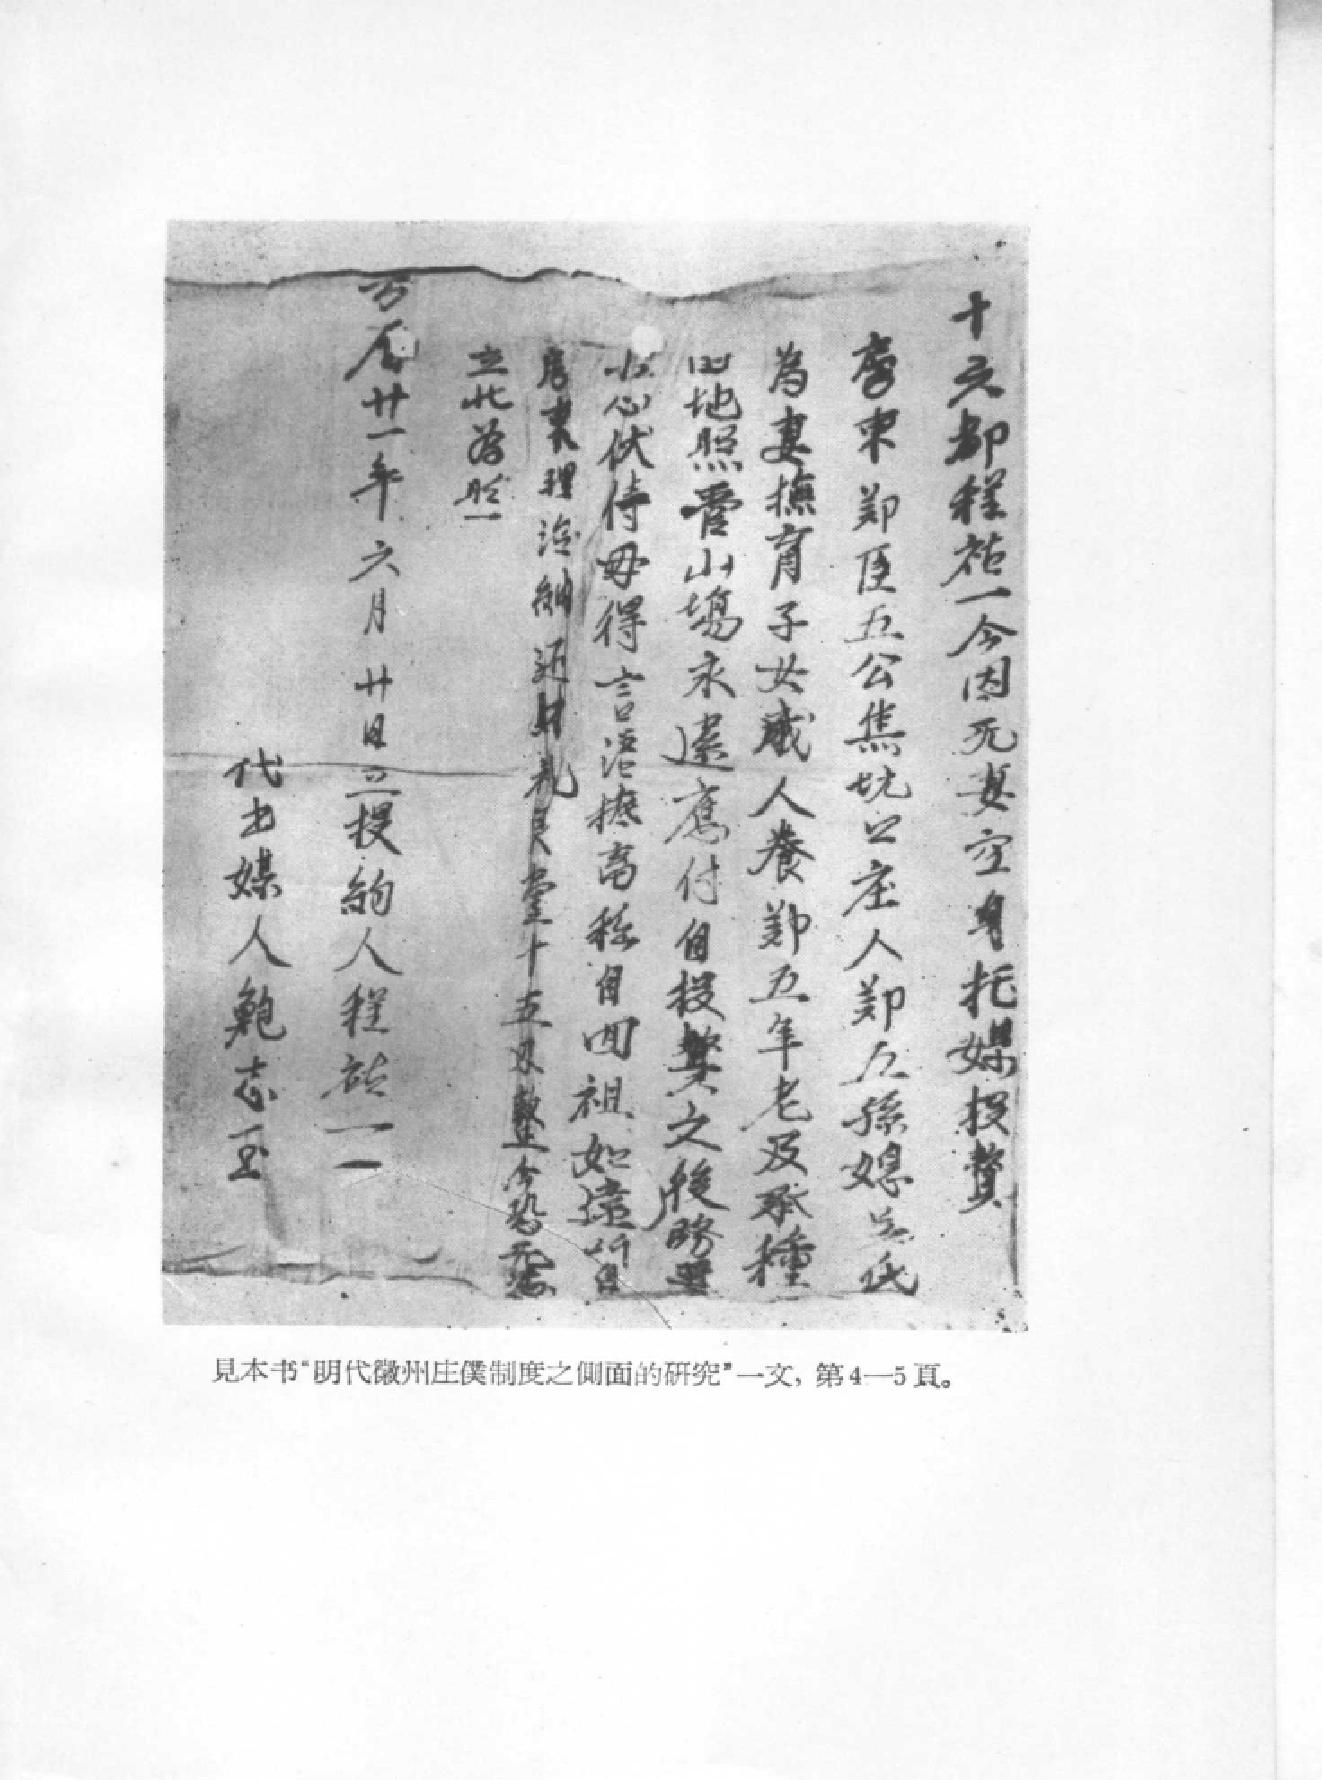 十六都程祐一今因死妻空身托媒投贅
房東鄭臣五公焦坑口庄人鄭五孫媳吳氏
為妻撫育子女成人養鄭五年老及承種
田地照管山場永遠應付自投贅之後務要
小心伏侍毋得言語抵高称自回祖如違听自
房東理治 財礼 十五 整今恐无凴
立此為照
万曆廿一年六月廿日立投約人程祐一
代书媒人鮑志玉
見本书“明代徽州庄僕制度之側面的研究”一文，第4—5頁。